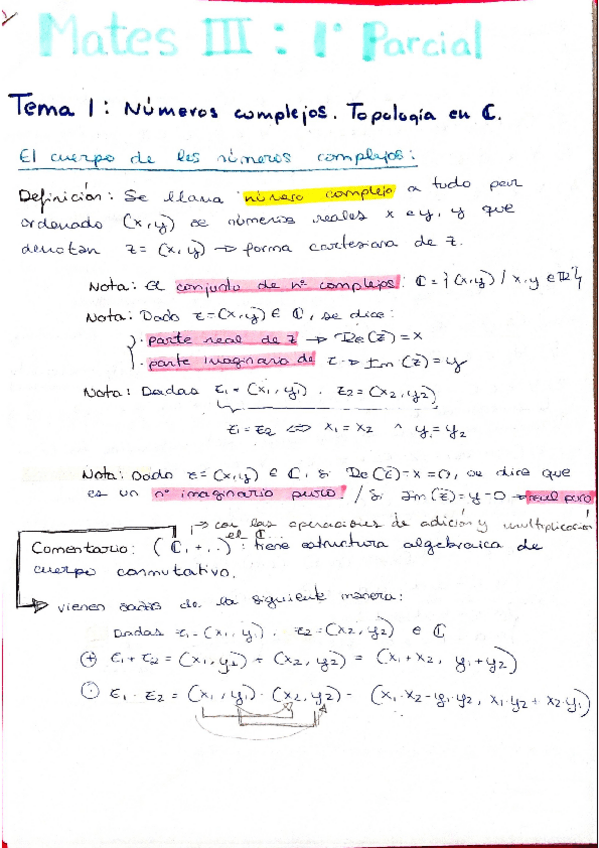 Mates III : 1º Parcial
Tema 1: Números complejos. Topología en ℂ.
El cuerpo de los números complejos:
Definición: Se llama número complejo a todo par
ordenado (x,y) de números reales x e y, y que
denotan z = (x,y) → forma cartesiana de z.
Nota: El conjunto de nº complejos: ℂ = {(x,y) / x,y ∈ ℝ}
Nota: Dado z = (x,y) ∈ ℂ, se dice:
· parte real de z → Re(z) = x
· parte imaginaria de z → Im(z) = y
Nota: Dadas z₁ = (x₁, y₁) . z₂ = (x₂, y₂)
z₁ = z₂ ⇔ x₁ = x₂ ∧ y₁ = y₂
Nota: Dado z = (x,y) ∈ ℂ, si Re(z) = x = 0, se dice que
es un nº imaginario puro. / Si Im(z) = y = 0 → real puro
→ con las operaciones de adición y multiplicación
el ℂ
Comentario: (ℂ, +, ·) : tiene estructura algebraica de
cuerpo conmutativo.
vienen dados de la siguiente manera:
Dadas z₁ = (x₁, y₁) . z₂ = (x₂, y₂) ∈ ℂ
⊕ z₁ + z₂ = (x₁, y₁) + (x₂, y₂) = (x₁ + x₂, y₁ + y₂)
⊙ z₁ · z₂ = (x₁, y₁) · (x₂, y₂) = (x₁·x₂ - y₁·y₂, x₁·y₂ + x₂·y₁)